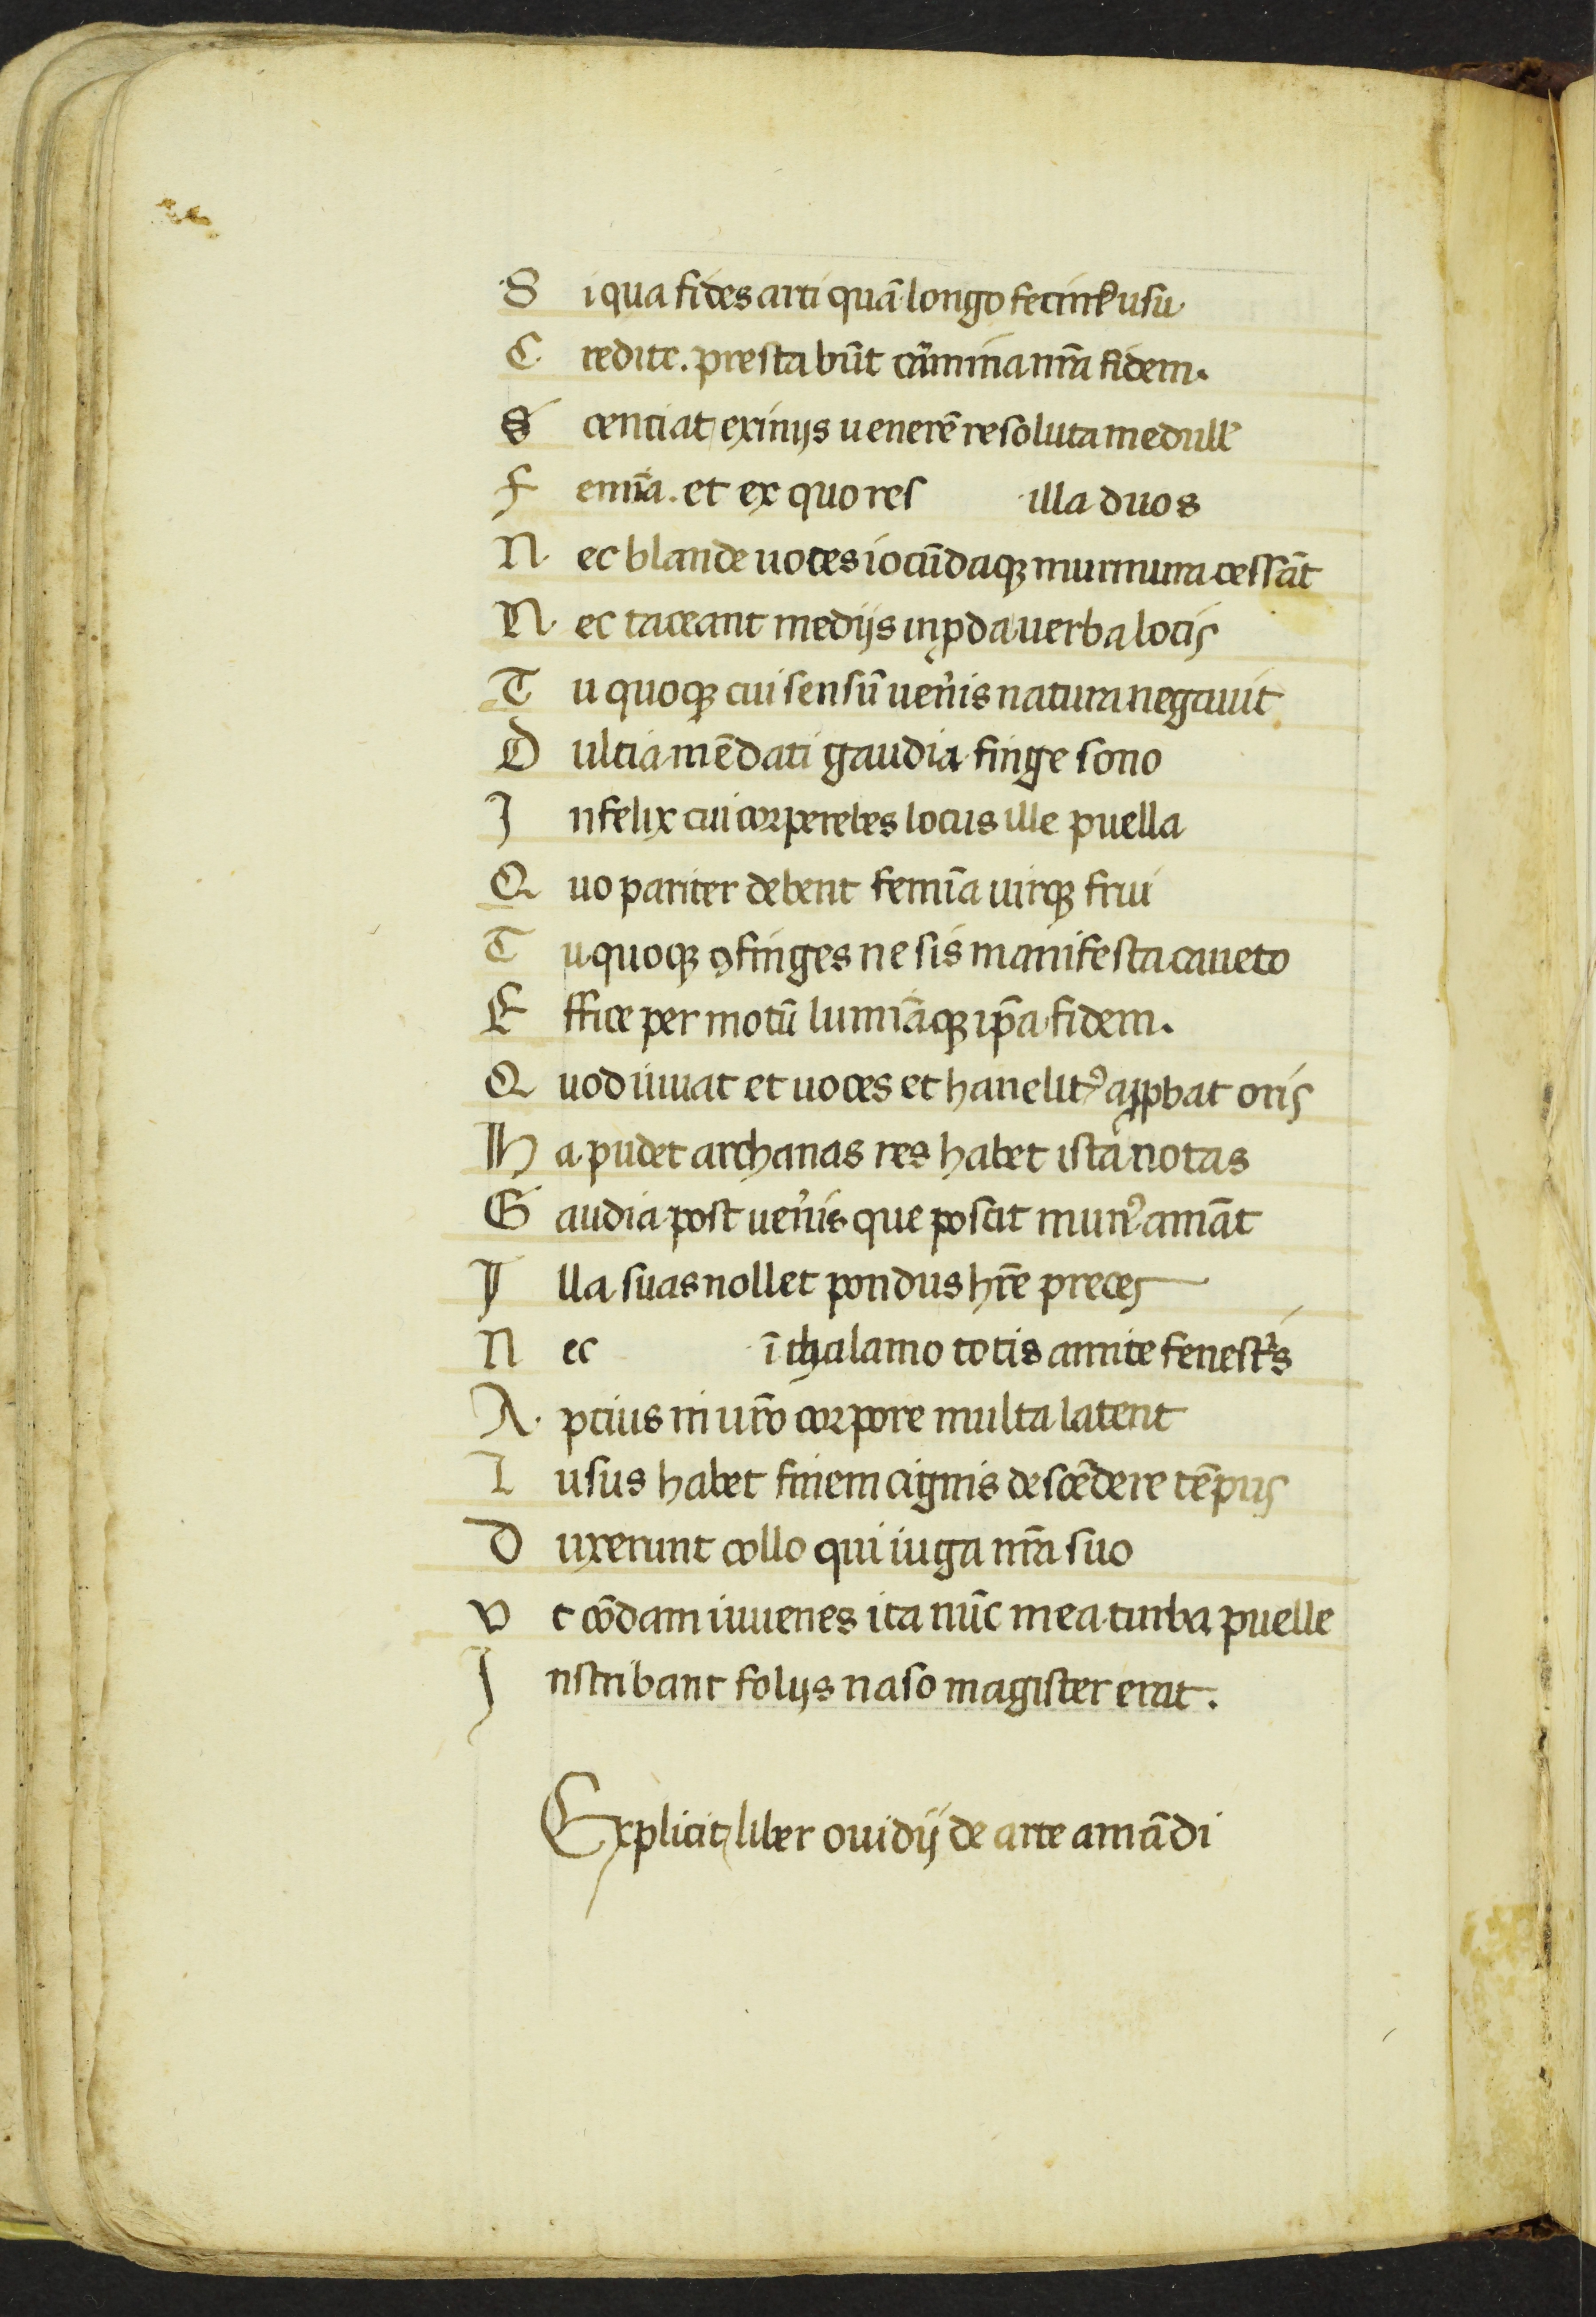 S i qua fides arti quã longo fecimꝰ usu
C redite. prestabũt cãrmina nr̃a fidem.
S cenciat ex iniis uenerẽ resoluta medull'
F emĩa. et ex quo res illa duos
N ec blande uoces iocũdaqꝫ murmura cessãt
N ec taceant mediis inꝓba uerba locis
T u quoqꝫ cui sensũ uen̾is natura negauit
D ulcia mẽdaci gaudia finge sono
I nfelix cui corpere hebes locus ille puella
Q uo pariter debent femĩa uirqꝫ frui
T u quoqꝫ ꝯfinges ne sis manifesta caueto
E ffice per motũ lumĩaqꝫ ip̃a fidem.
Q uod iuuat et uoces et hanelitꝰ aꝓbat oris
H a pudet archanas res habet ista notas
G audia post uen̾is que poscit munꝰ amãt
I lla suas nollet pondus hr̃e preces
N ec ĩ thalamo totis amite fenest̾s
A pcius in ur̃o corpore multa latent
L usus habet finem cignis descẽdere tẽpus
D uxerunt collo qui iuga nr̃a suo
V t cõdam iuuenes ita nũc mea turba puelle
I nscribant foliis naso magister erat.
Explicit liber ouidij de arte amãdi